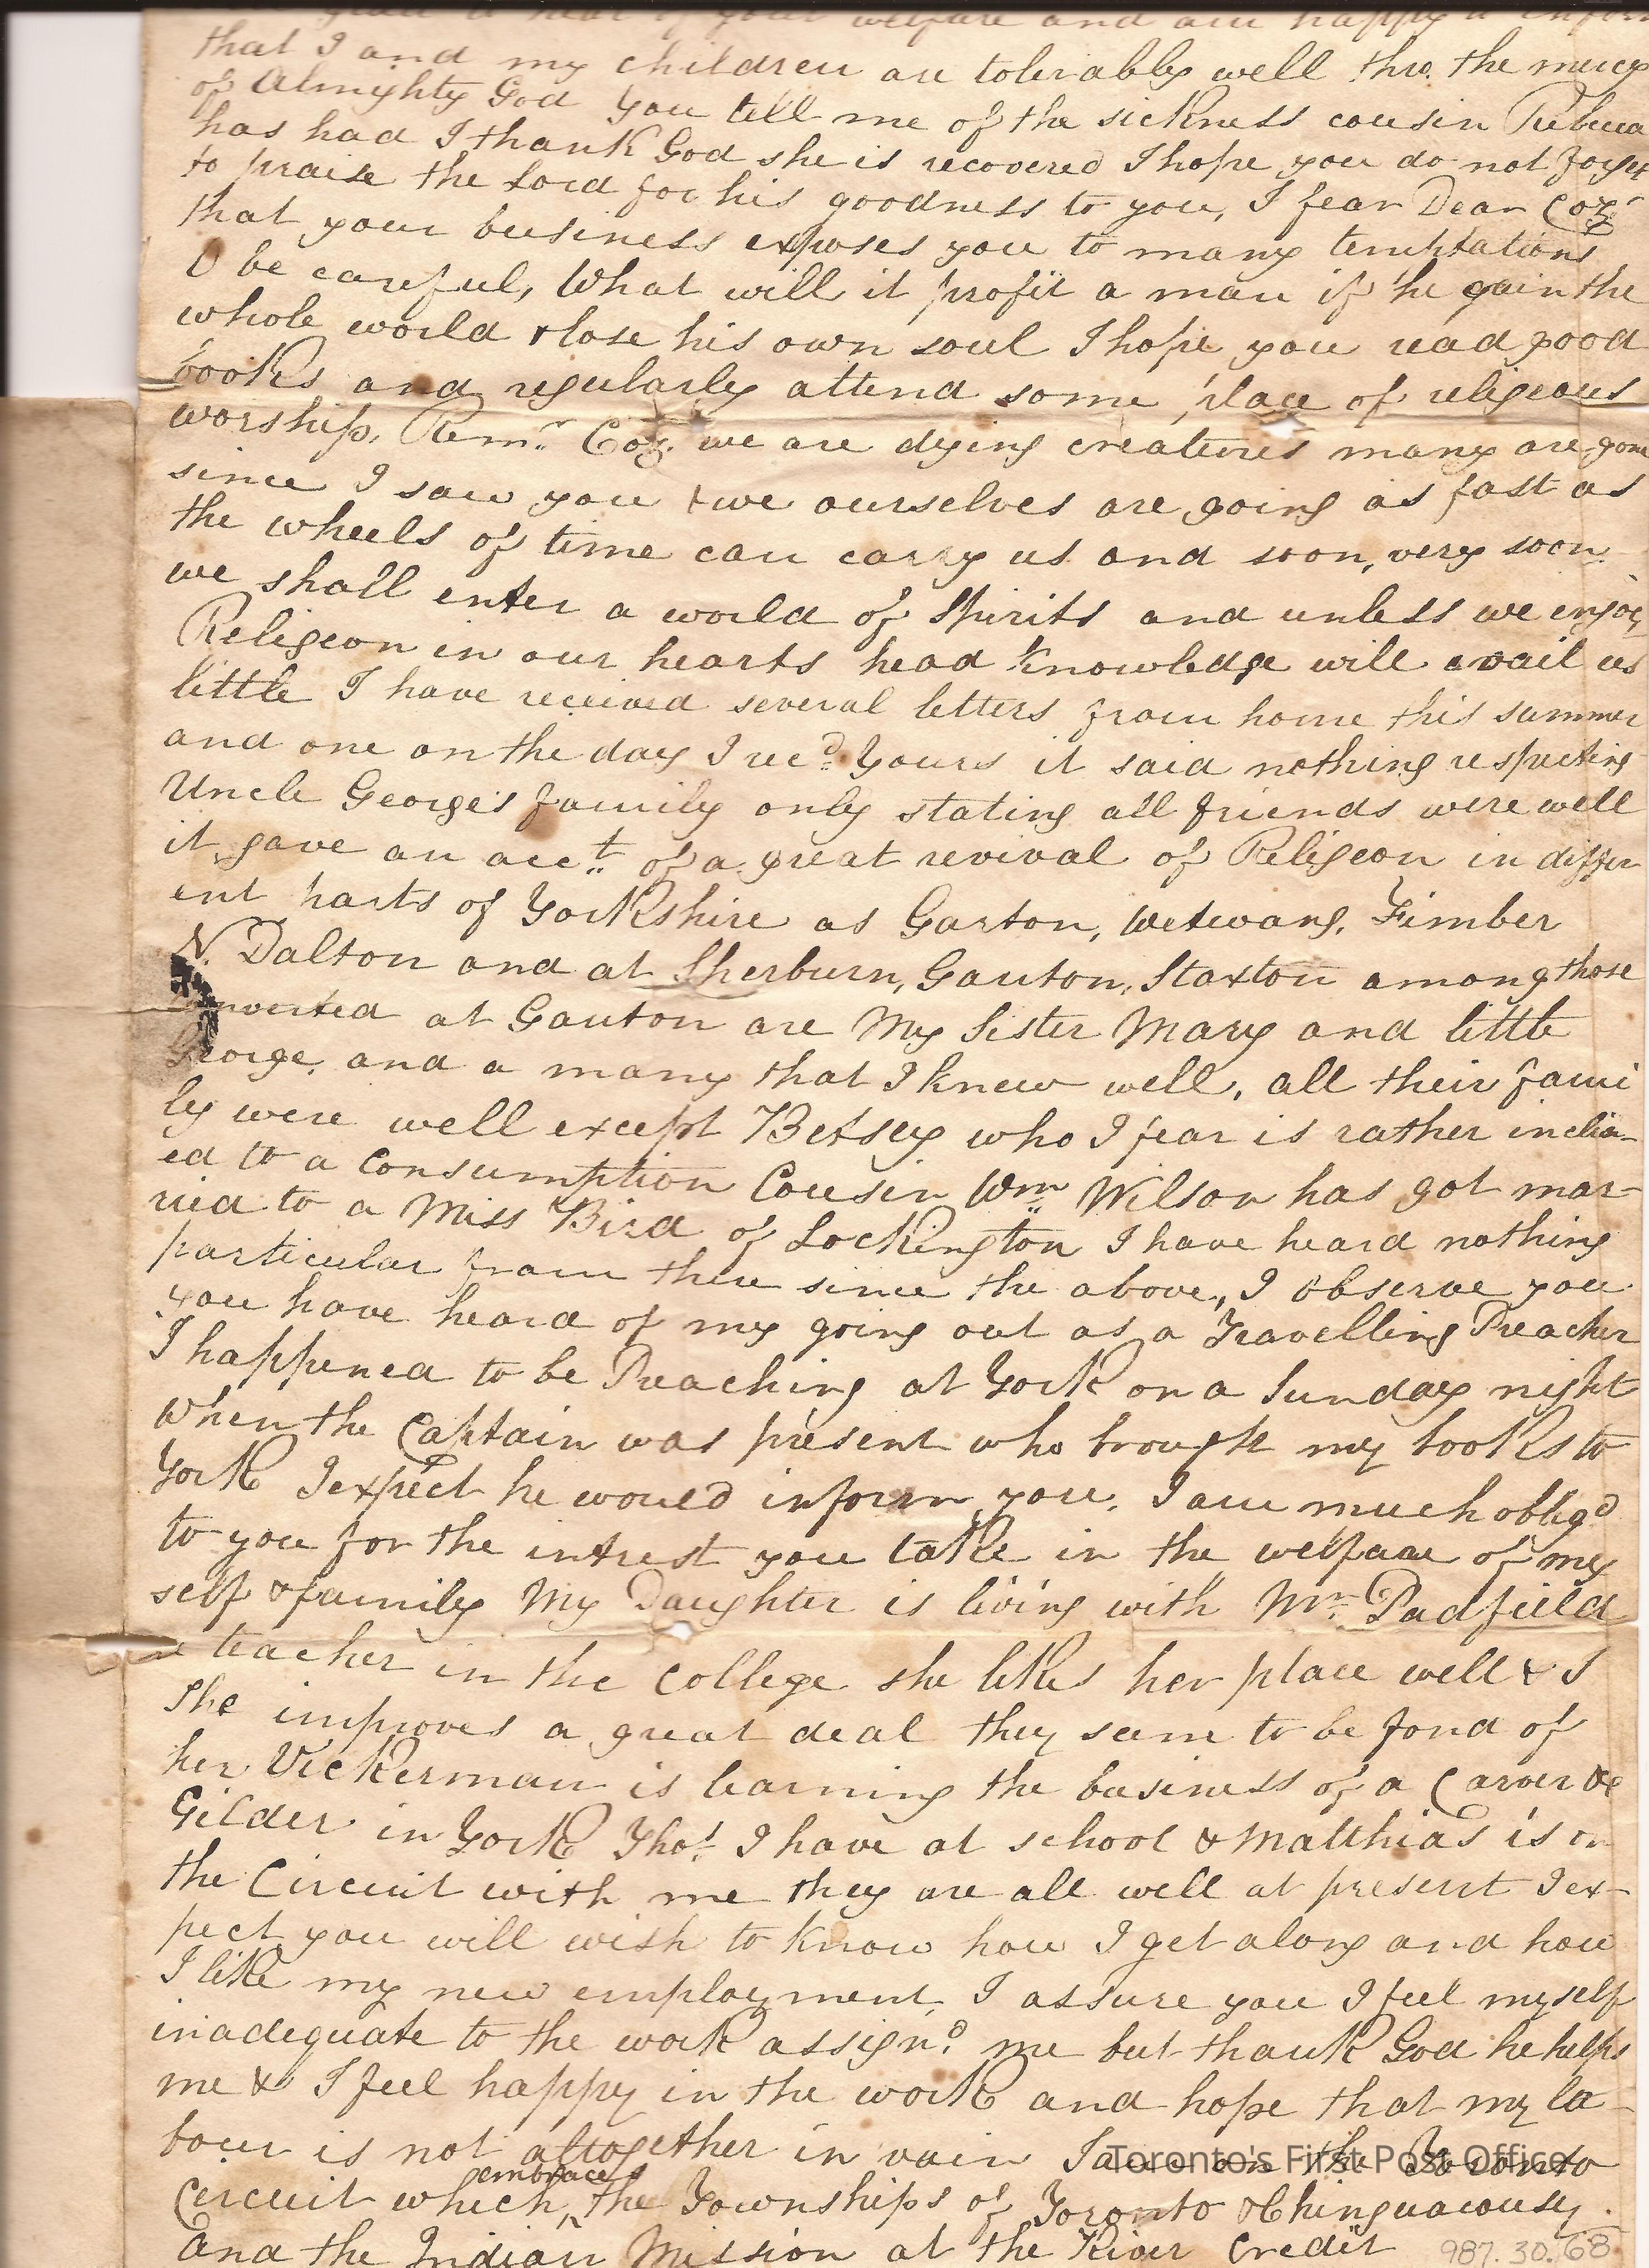 glad to hear of your welfare and am happy to inform
that I and my children are tolerably well thro. the mercy
of Almighty God you tell me of the sickness cousin Rebecca
has had I thank God she is recovered I hope you do not forget
to praise the Lord for his goodness to you, I fear Dear Coz.
that your business exposes you to many temptations
O be careful, What will it profit a man if he gain the
whole world & lose his own soul I hope you read good
books and regularly attend some place of religeous
worship, Remr. Coz. we are dying creatures many are gone
since I saw you & we ourselves are going as fast as
the wheels of time can carry us and soon, very soon
we shall enter a world of Spirits and unless we enjoy
Religeon in our hearts head knowledge will avail us
little I have received several letters from home this summer
and one on the day I recd. Yours it said nothing respecting
Uncle George's family only stating all friends were well
it gave an acct. of a great revival of Religeon in differ
ent parts of Yorkshire as Garton, Wetwang, Fimber
N. Dalton and at Sherburn, Ganton, Staxton among those
converted at Ganton are My Sister Mary and little
George, and a many that I knew well, all their fami
ly were well except Betsey who I fear is rather inclin-
ed to a Consumption Cousin Wm. Wilson has got mar-
ried to a Miss Bird of Lockington I have heard nothing
particular from thee since the above, I observe you
you have heard of my going out as a Travelling Preacher
I happened to be Preaching at York on a Sunday night
when the Captain was present who brought my books to
York I expect he would inform you, I am much obligd
to you for the intrest you take in the welfare of my
self & family My Daughter is living with Mr. Padfield
a teacher in the College she likes her place well & I
she improves a great deal they seem to be fond of
her Vickerman is learning the business of a Carver &
Gilder in York Thos. I have at school & Matthias is on
the Circuit with me they are all well at present I ex-
pect you will wish to know how I get along and how
I like my new employment, I assure you I feel myself
inadequate to the work assignd. me but thank God he helps
me & I feel happy in the work and hope that my la-
bour is not altogether in vain I am on the Toronto
Toronto's First Post Office
Circuit which embraces the Townships of Toronto & Chinguacousy
and the Indian Mission at the River Credit
987.30.68